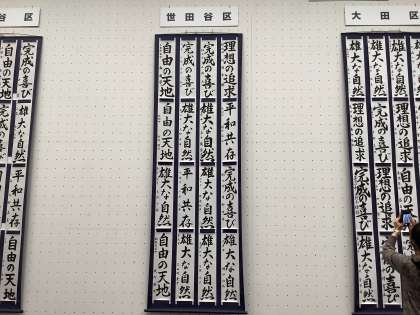 区
完成の喜び
雄大な自然
平和共存
自由の天地
自由の天地
世田谷区
理想の追求
平和共存
完成の喜び
雄大な自然
完成の喜び
雄大な自然
雄大な自然
雄大な自然
完成の喜び
雄大な自然
平和共存
雄大な自然
自由の天地
自由の天地
雄大な自然
自由の天地
大田区
雄大な自然
理想の追求
自由の天
雄大な自然
完成の喜び
理想の追求
雄大な自然
雄大な自然
理想の追求
完成の喜び
雄大な自然